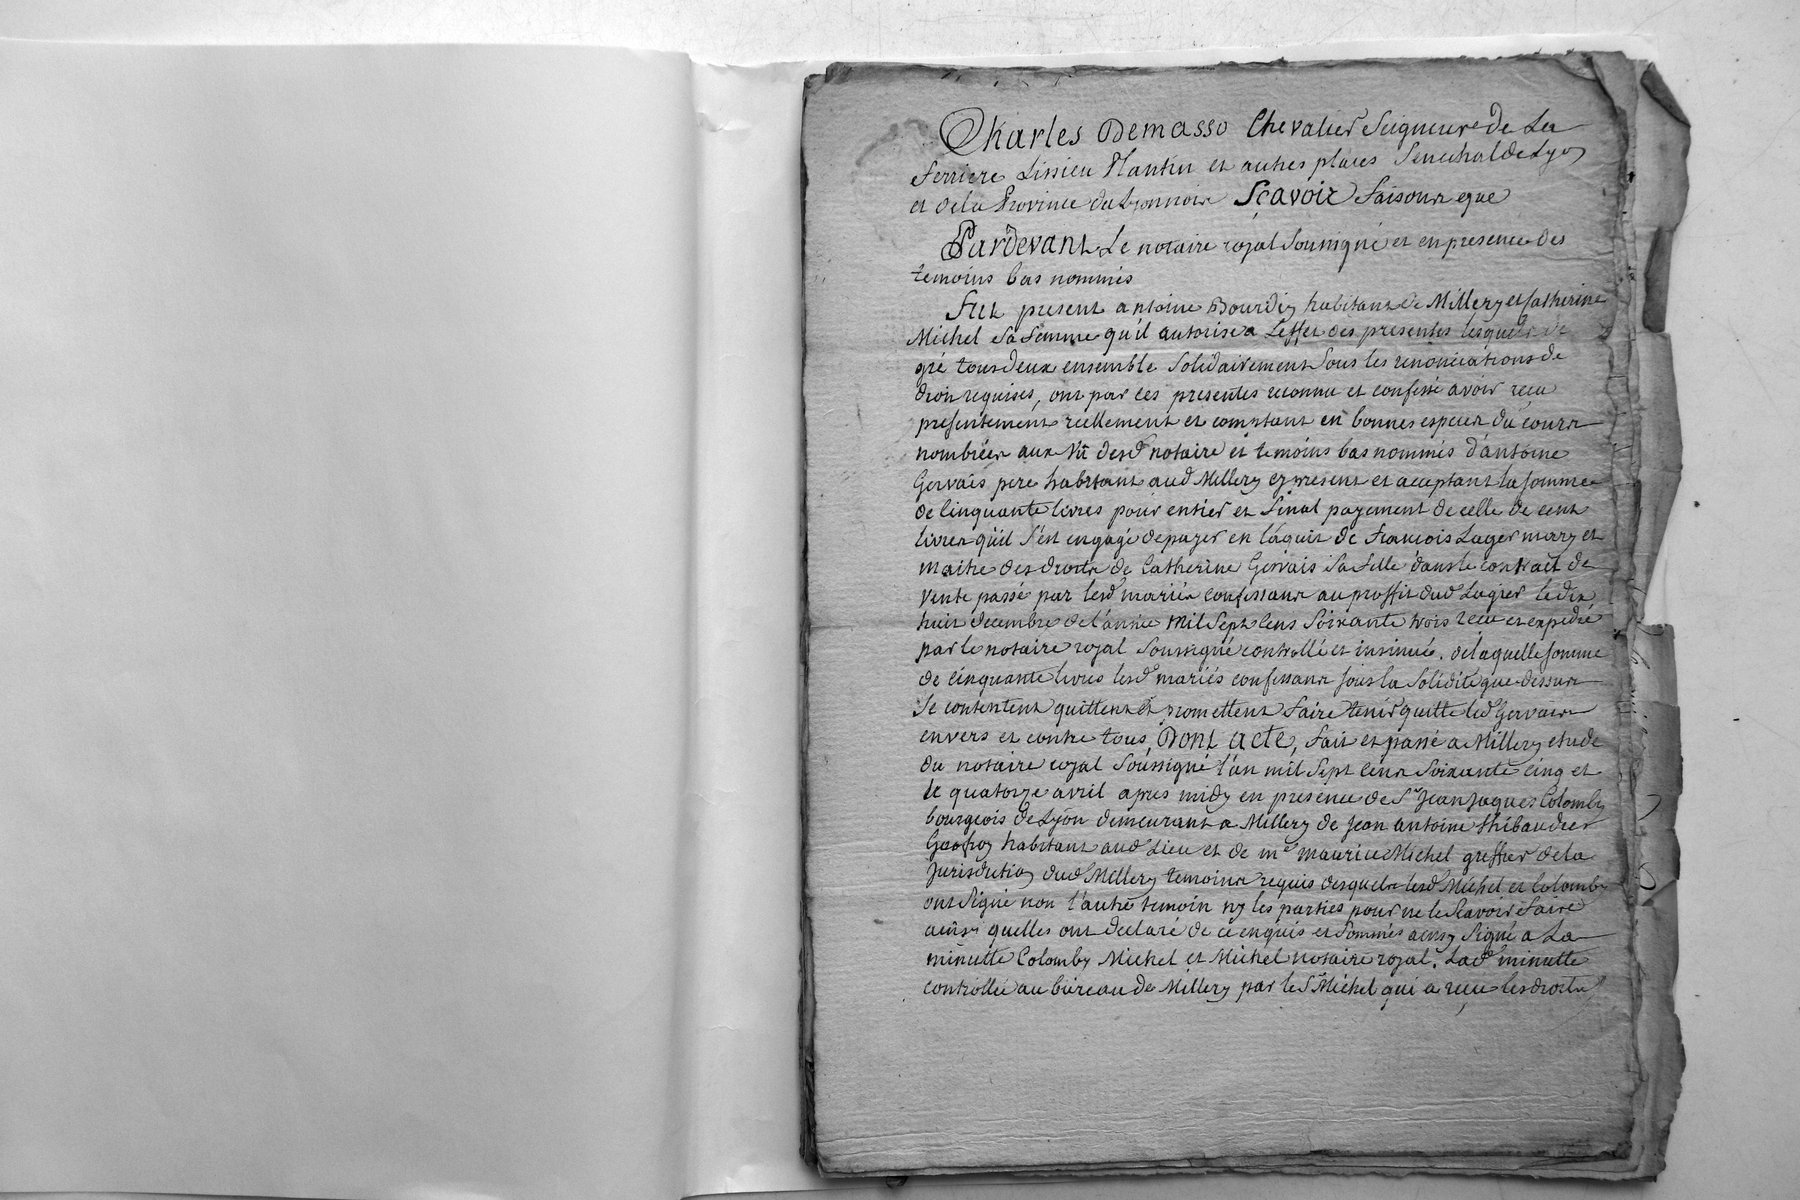 Charles Demasso Chevalier Seigneur de La
ferriere Lissieu Plantin et autres places Senechal de Lyon
et de la Province du Lyonnois Sçavoir faisons que
Pardevant Le notaire royal soussigné et en presence des
temoins bas nommés
Fut present antoine Bourdin habitant de Millery et Catherine
Michel sa femme qu'il autorise a L'effet des presentes lesquels de
gré tous deux ensemble solidairement sous les renonciations de
droit requises, ont par ces presentes reconnu et confessé avoir reçu
presentement reellement et comptant en bonnes especes du cours
nombrées aux vû desd notaire et temoins bas nommés d'antoine
Gervais pere habitant aud Millery cy present et aceptant la somme
de Cinquante livres pour entier et final payement de celle de cent
livres qu'il s'est engagé de payer en l'aquit de François Lager mary et
maitre des droits de Catherine Gervais sa fille dans le contrait de
vente passé par lesd mariés confessants au proffit dud Lagier le dix
huit decembre de l'année mil sept Cens soixante trois reçu et expedié
par le notaire royal soussigné controllé et insinué. de laquelle somme
de cinquante livres lesd mariés confessants sous la solidité que dessus
se contentent quittent et promettent faire tenir quitte led Gervais
envers et contre tous, Dont acte, fait et passé a Millery etude
du notaire royal soussigné l'an mil sept Cens soixante cinq et
le quatorze avril apres midy en presence de Sr Jean Jaques Colomby
bourgeois de Lyon demeurant a Millery de Jean antoine thibaudier
habitant aud Lieu et de me maurice Michel greffier de la
Jurisdiction dud Millery temoins requis desquels lesd Michel et Colomby
ont signé non l'autre temoin ny les parties pour ne le sçavoir faire
ainsi quelles ont declaré de ce enquis et sommés ainsy signé a La
minutte Colomby Michel et Michel notaire royal. Lad minutte
controllée au bureau de Millery par le Sr Michel qui a reçu les droits